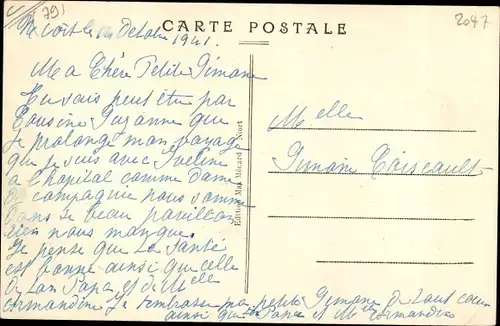 791
CARTE POSTALE
2047
Niort le Octobre
1941.
Ma Chère Petite Simone
Tu sais peut être par
Cousine Suzanne que
je prolonge mon voyage
que je suis avec Yveline
a l'hopital comme dame
de compagnie nous somme
dans le beau pavillon
rien nous manque.
Je pense que la santé
est bonne ainsi que celle
de ton Papa et de Melle
Germandine Je t'embrasse ma petite Simone de tout coeur
ainsi que ton Papa et Melle Germandine
Melle
Simone
Edition Mme Ménard Niort